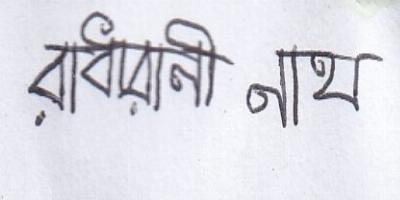 রাধারানী নাথ